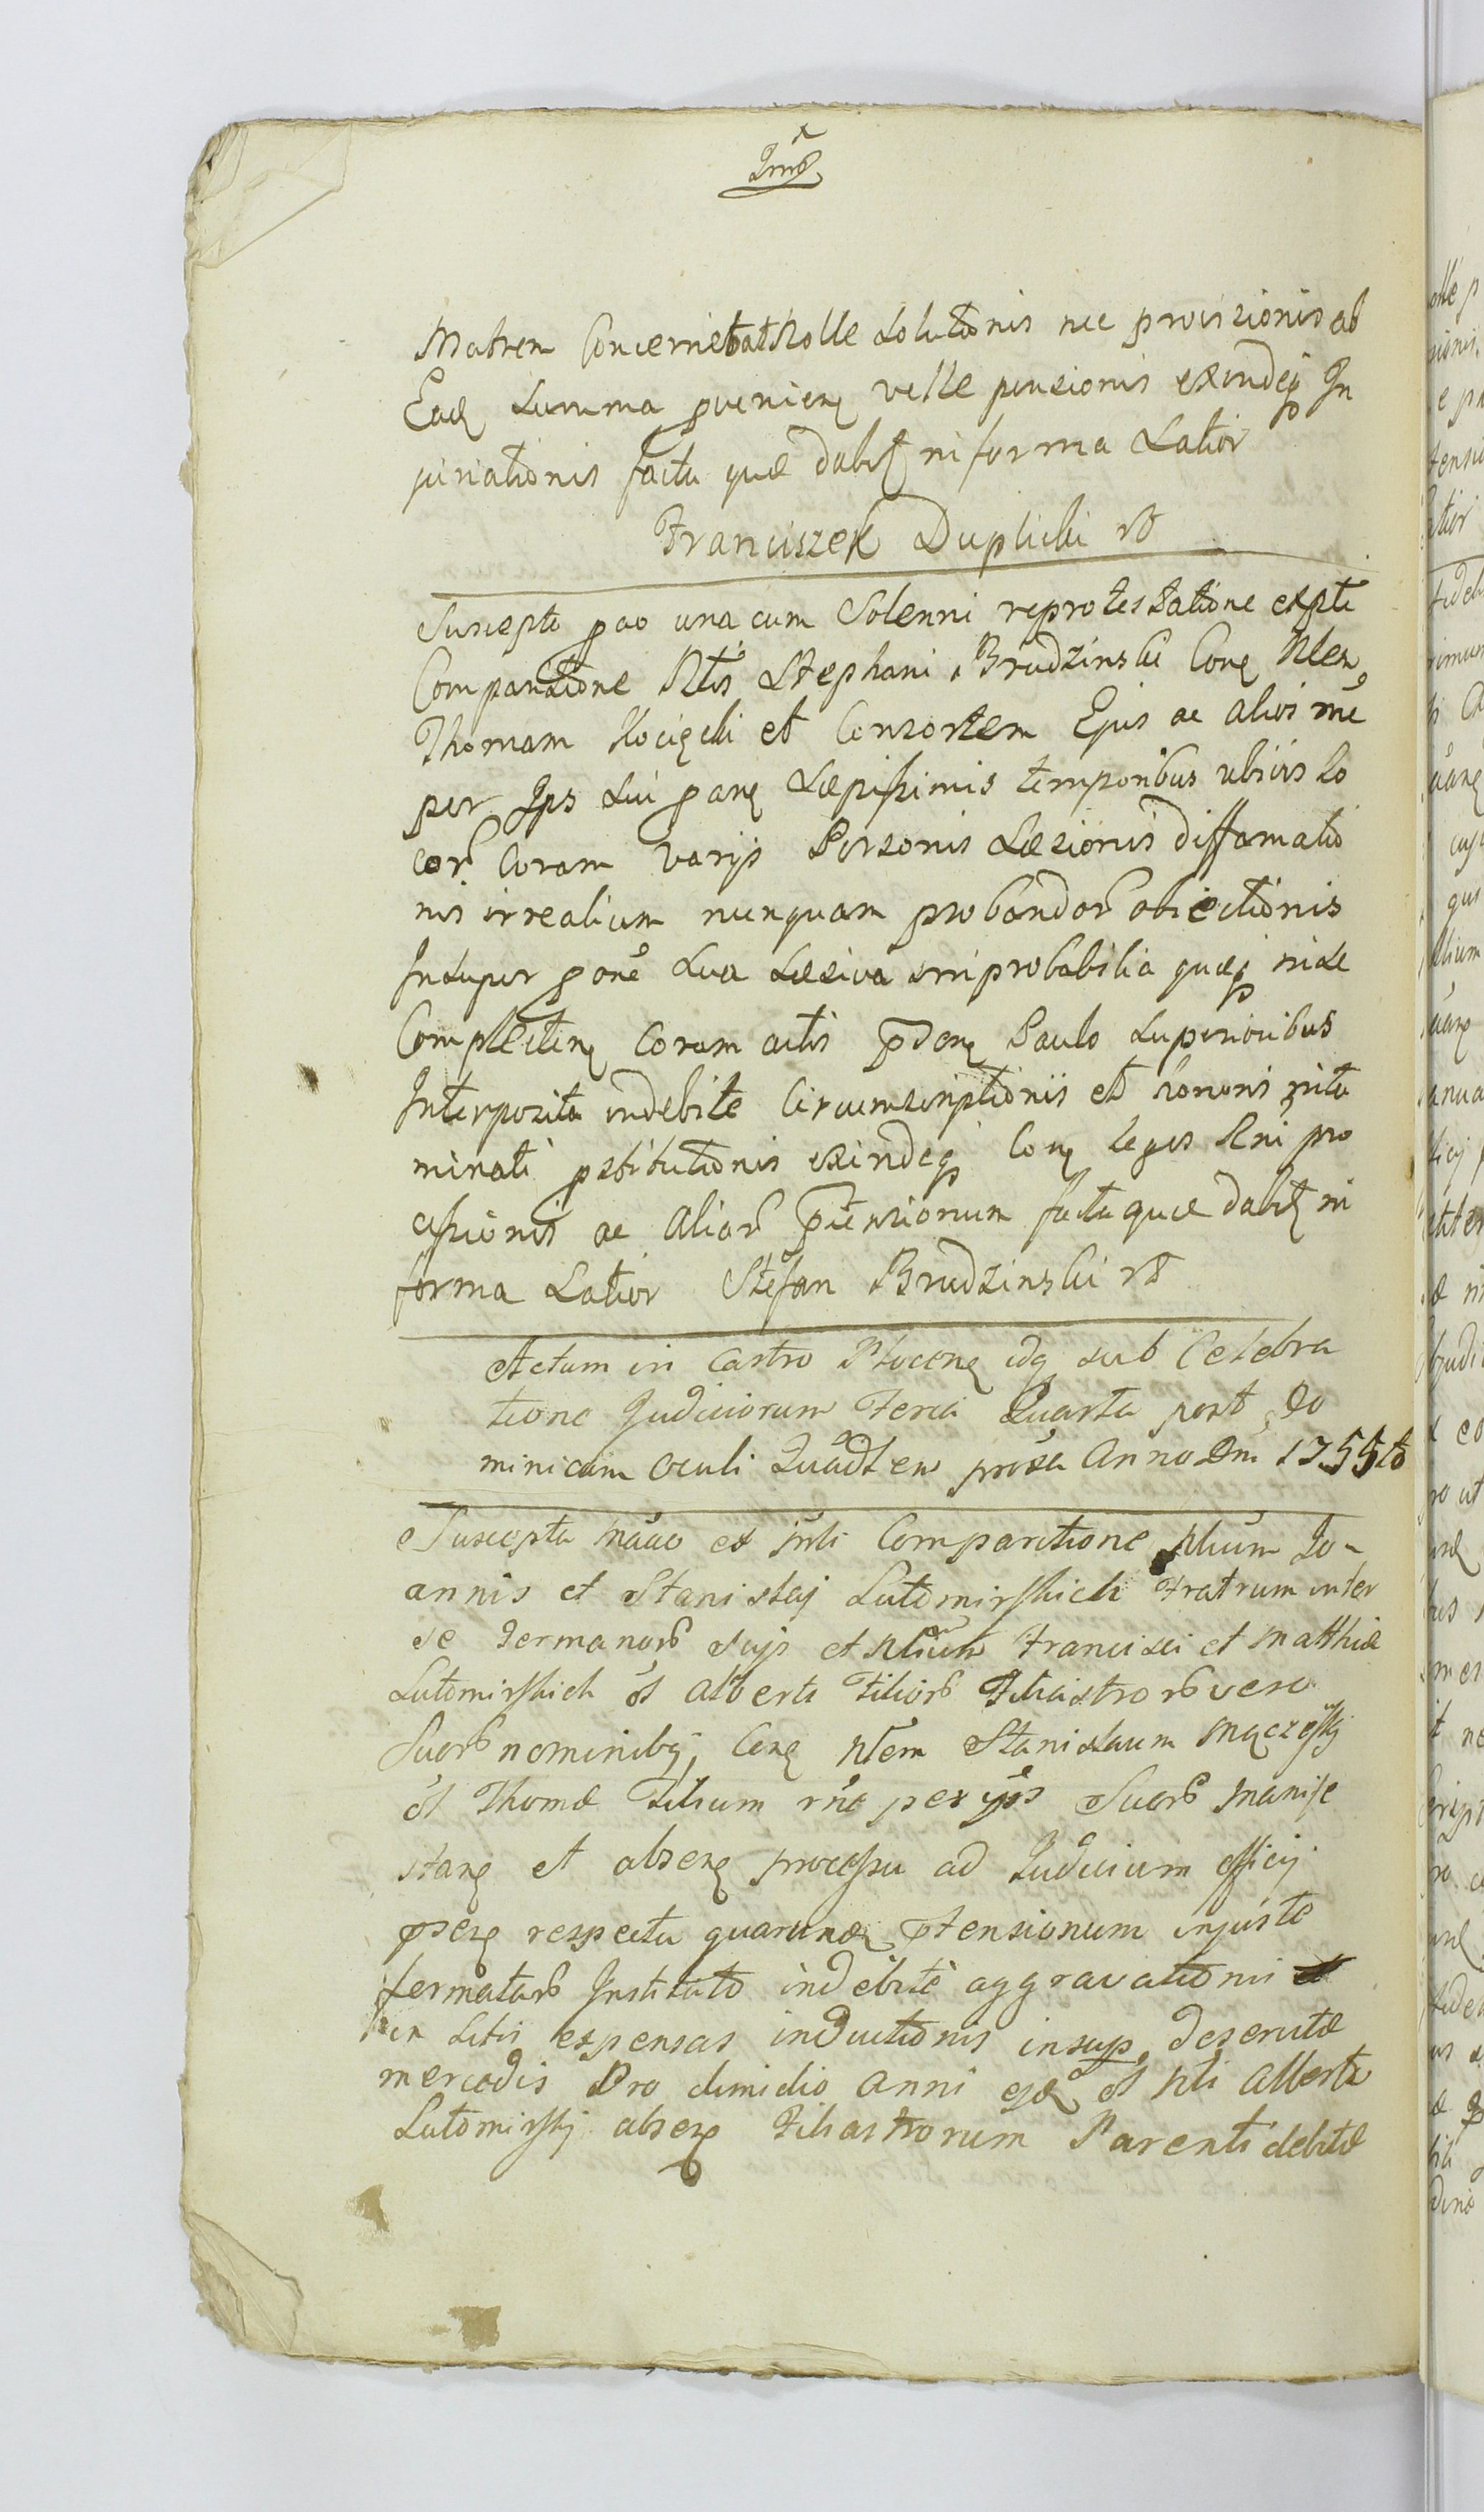 Matrem Concernebat Nolle Solutionis nec provisionis ab
Eadę Summa pvenienę velle pensionis exindeq In
juriationis facta quæ dabit in forma Latior
Franciszek Duplicki
Suscepta pao una cum Solenni reprotestatione expte
Comparitione Nlis Stephani Brudzinski Conę Nlem
Thomam Kocięcki et Consortem Ejus ac alios
per Ips Sui Sæpissimis temporibus ubivis Lo
cor Coram varijs Personis Læsionis diffamatio
nis irrealium nunquam probandor obiectionis
Insuper Sua Læsiva improbabilia quæq in se
Complectenę Coram actis Paulo Superioribus
Interposita indebite Circumscriptionis et honoris
minati exindeq Conę legis Rni pro
cessionis ac Alior ptensionum facta quæ dabit in
forma Latior Stefan Brudzinski
Actum in Castro Plocenę idq sub Celebra
tione Judiciorum Feria Quarta post Do
minicam Oculi proxa Anno Dni 1755to
Suscepta et Comparitione Nlium Jo-
annis et Stanislaj Lutomirskich Fratrum inter
se Germanorb suis et Nlium Francisci et Matthiæ
Lutomirskich ol Alberti Filiorb Filiastrorb vero
Suorb nominibq Conę Nlem Stanislaum
ol Thomæ Filium rne per ipos Suorb Manife
stanę et absenę processu ad Judicium officij
psenę respectu quarundę ptensionum injuste
fermatarb Instituto indebite aggravationis
in Litis expensas inductionis insup deservitæ
mercedis Pro dimidio Anni ejdę ol Nli Alberto
Lutomirskj absenę Filiastrorum Parenti debitæ